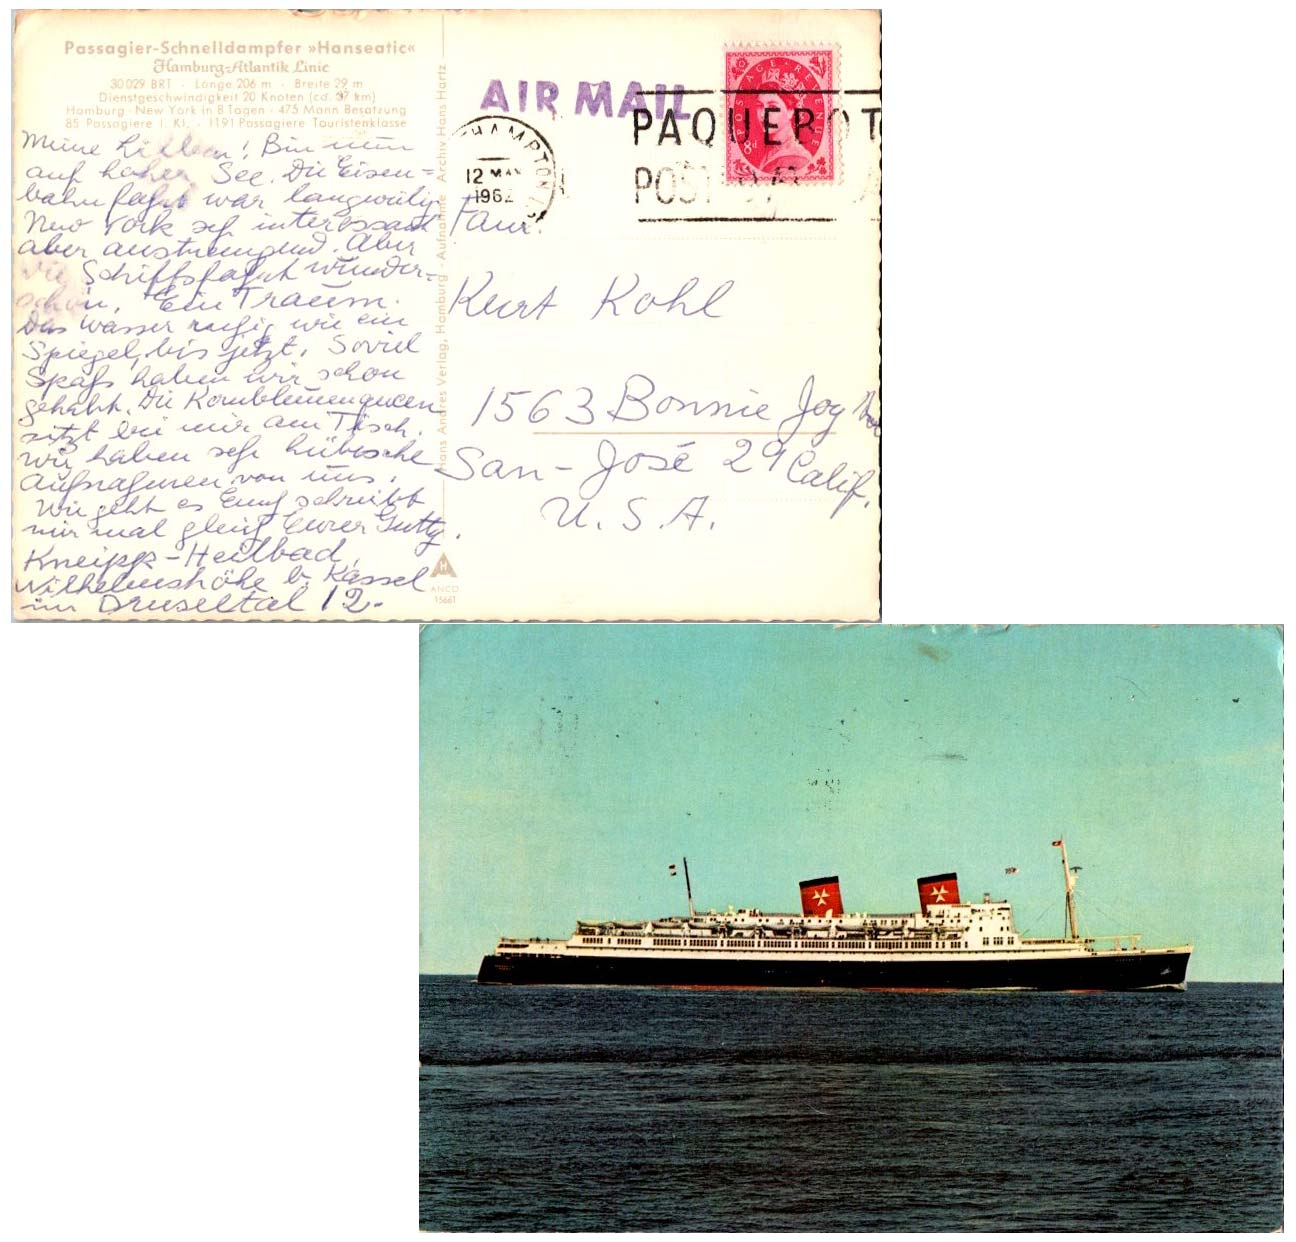 Passagier-Schnelldampfer »Hanseatic«
Hamburg-Atlantik Linie
30029 BRT · Länge 206 m · Breite 29 m
Dienstgeschwindigkeit 20 Knoten (cd. 37 km)
Hamburg-New York in 8 Tagen · 475 Mann Besatzung
85 Passagiere I. Kl. · 1191 Passagiere Touristenklasse
Meine Lieben! Bin nun
auf hoher See. Die Eisen=
bahnfahrt war langweilig
New York seh interessant
aber anstrengend. Aber
die Schiffsfahrt wunder-
schön. Ein Traum.
Das Wasser ruhig wie ein
Spiegel, bis jetzt. Soviel
Spaß haben wir schon
gehabt. Die Kornblumenqueen
sitzt bei mir am Tisch.
Wir haben seh hübsche
Aufnahmen von uns.
Wie geht es Euch schreibt
mir mal gleich Eurer Gutty.
Kneipp-Heilbad,
Wilhelmshöhe b. Kassel
im Druseltal 12.
Hans Andres Verlag, Hamburg · Aufnahme Archiv Hans Hartz
H
ANCO
15661
AIR MAIL
HAMPTON
12 MAY
1962
PAQUEBOT
POST
POSTAGE REVENUE
8d
Fam.
Kurt Kohl
1563 Bonnie Joy
San-José 29 Calif.
U.S.A.